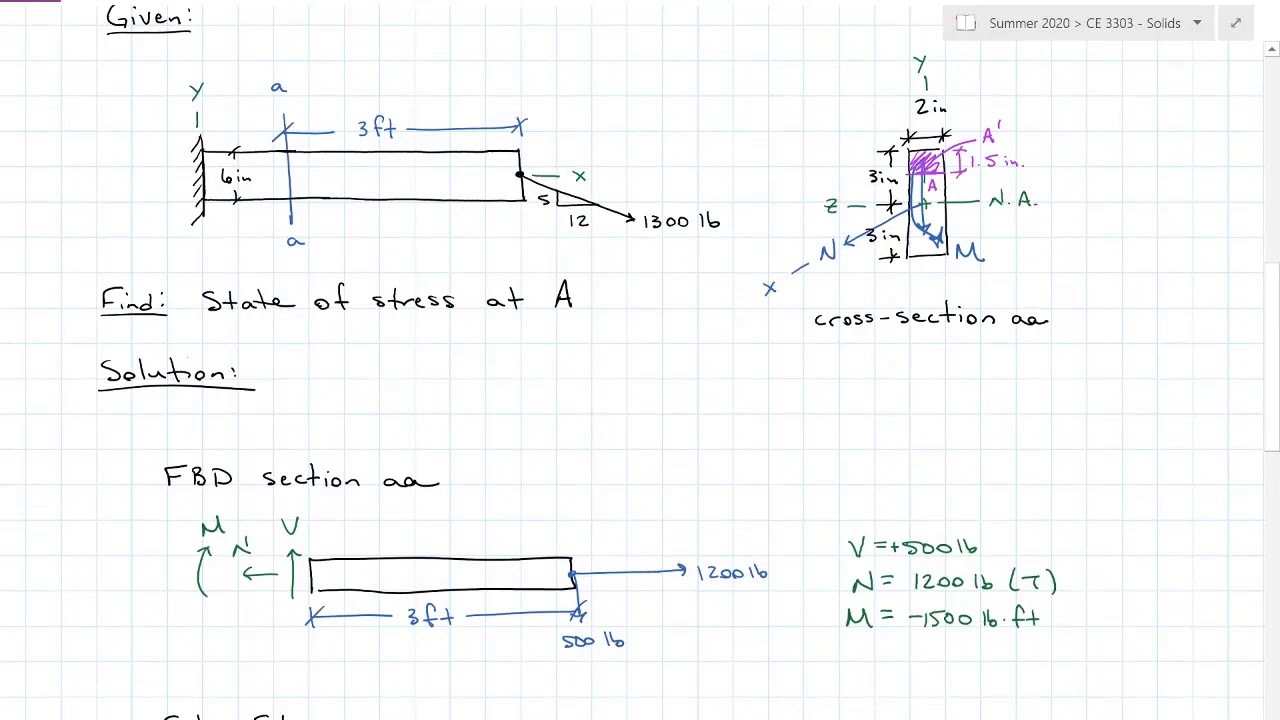 Given:
Summer 2020 > CE 3303 - Solids
Y
a
3 ft
6 in
x
5
12
1300 lb
a
Y
2 in
A'
1.5 in.
3 in
A
Z
N.A.
3 in
N
M
x
cross-section aa
Find: State of stress at A
Solution:
FBD section aa
M
N
V
1200 lb
3 ft
500 lb
V = +500 lb
N = 1200 lb (T)
M = -1500 lb·ft